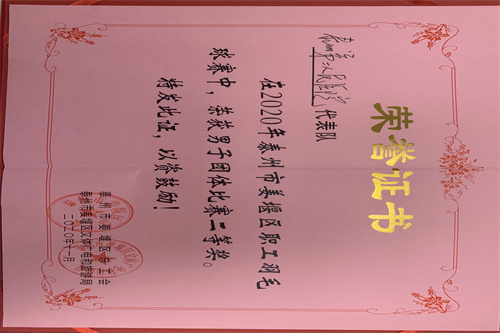 荣誉证书
泰州市第二人民医院 代表队
在2020年泰州市姜堰区职工羽毛
球赛中，荣获男子团体比赛二等奖。
特发此证，以资鼓励！
泰州市姜堰区总工会
泰州市姜堰区文体广电和旅游局
二〇二〇年十一月